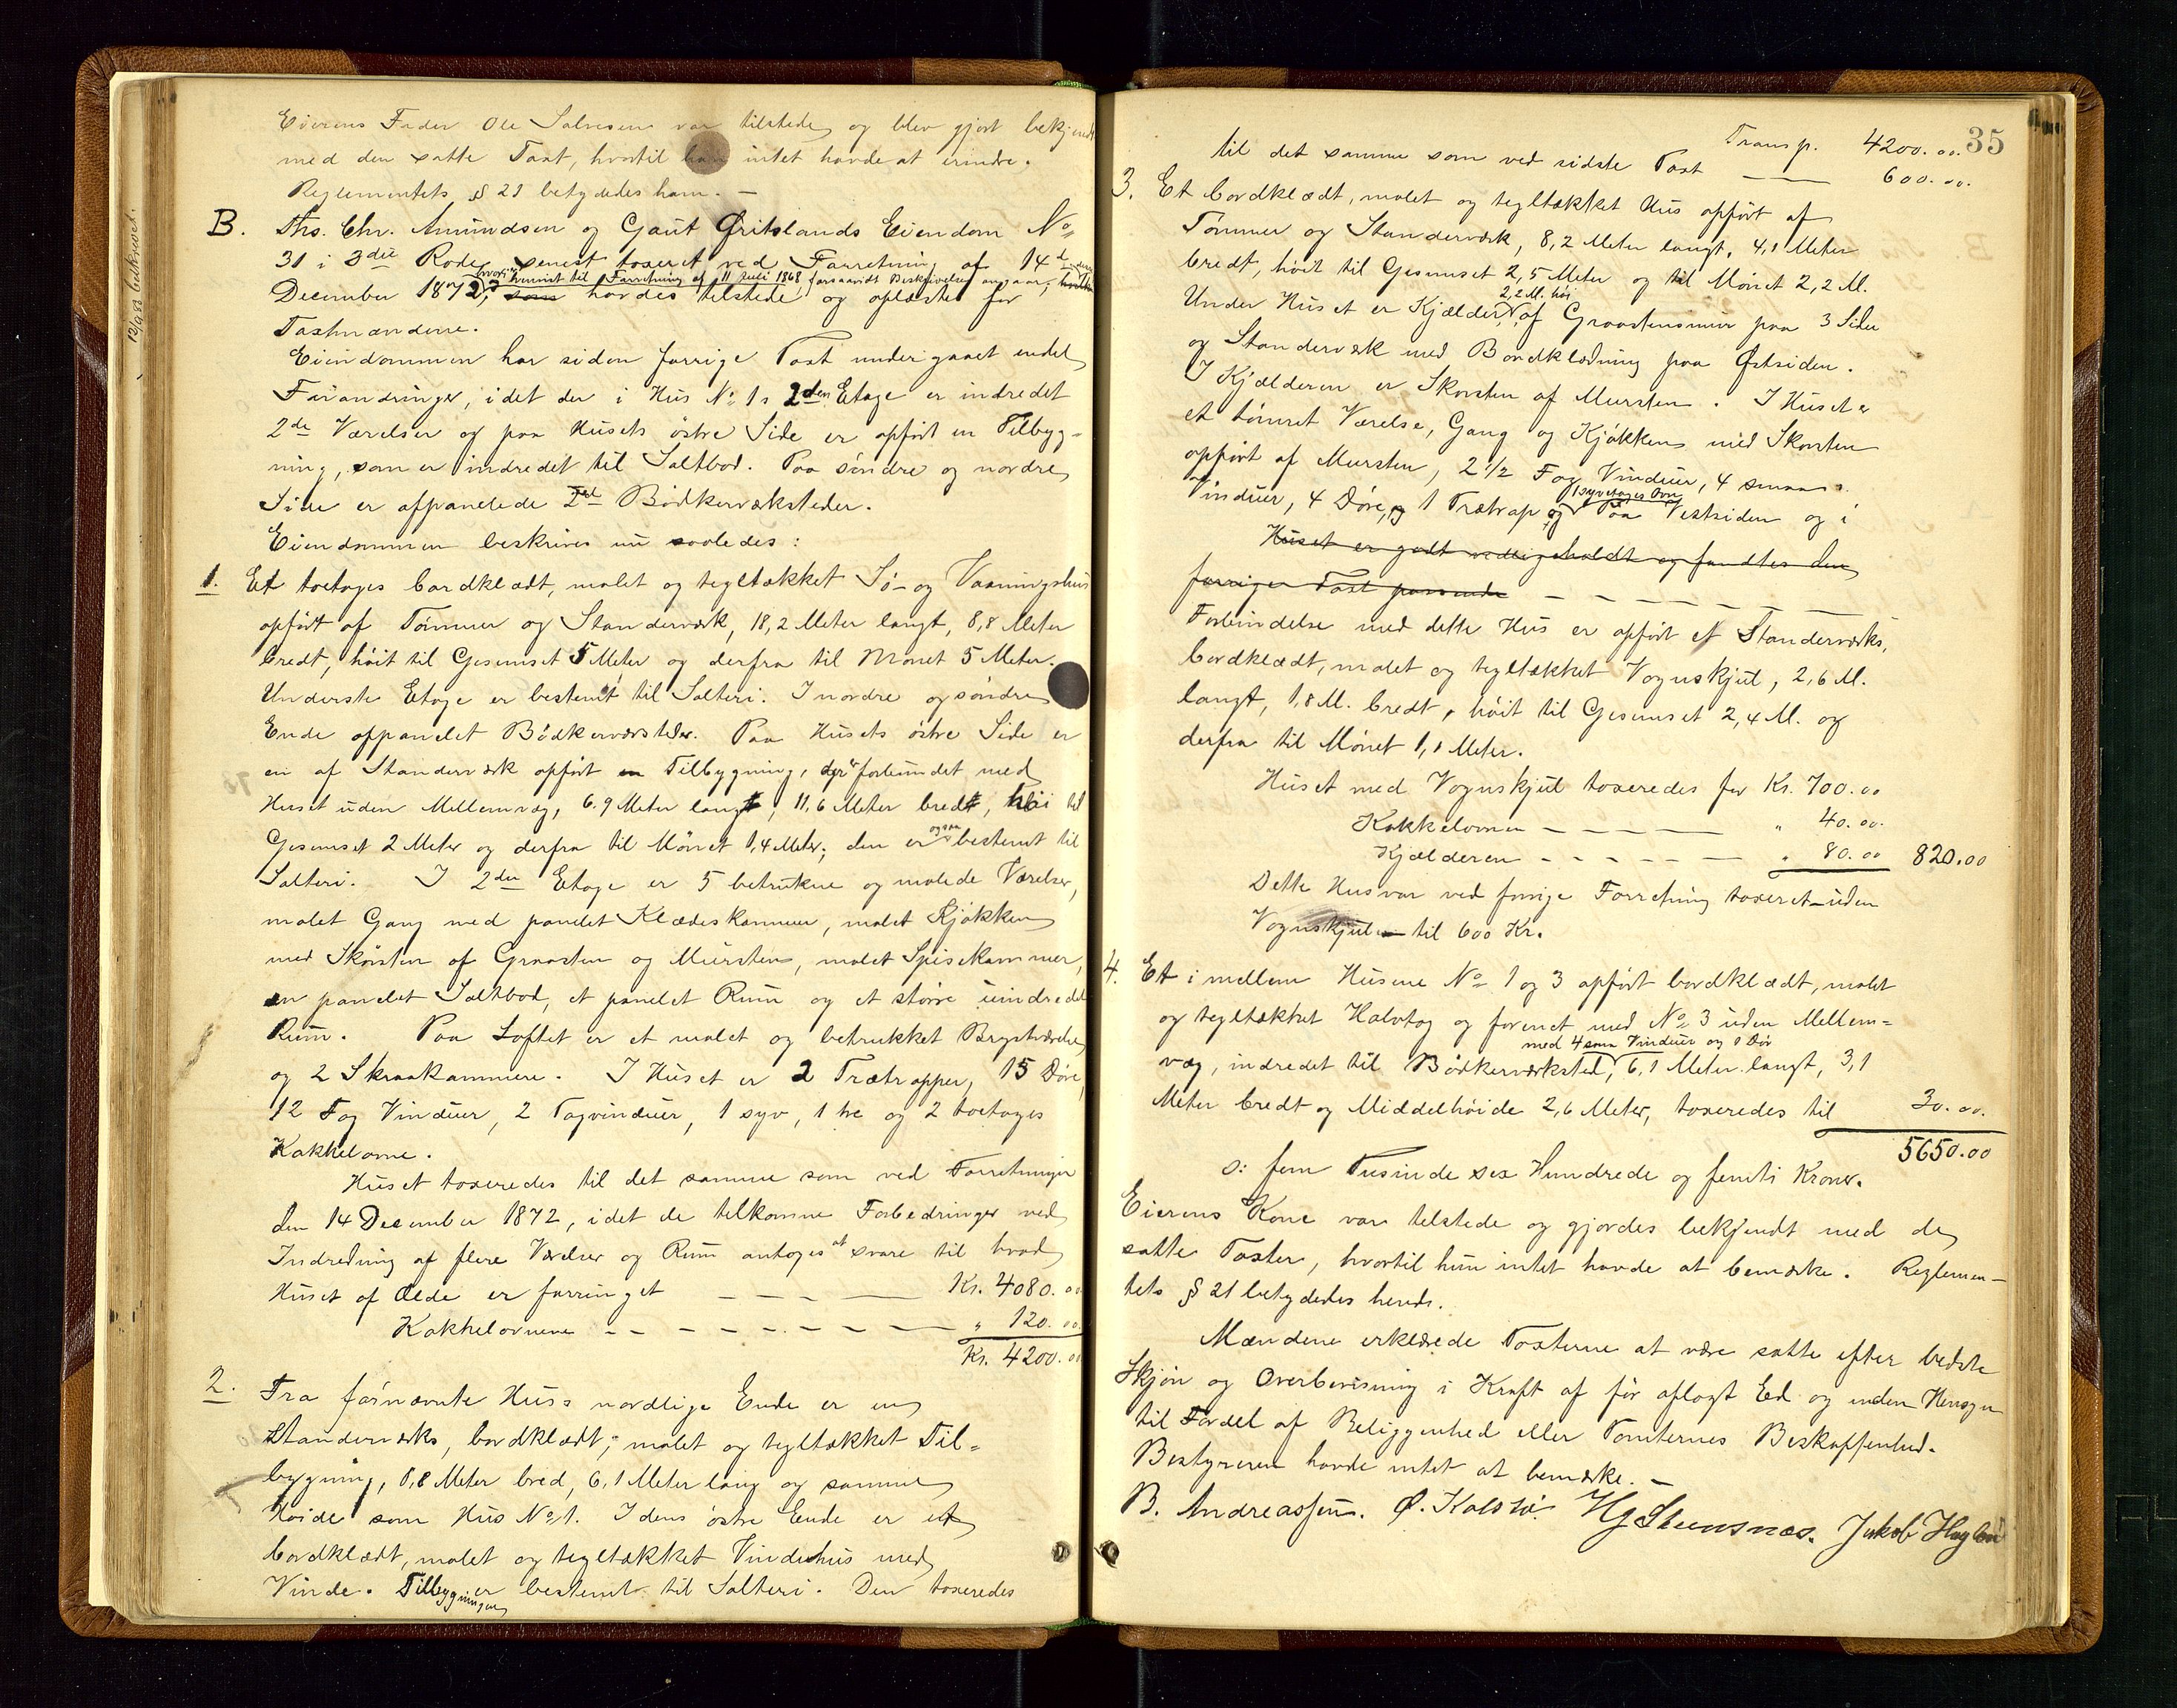 Eierens Fader Ole Salvesen var tilstede og blev gjort bekjendt
med den satte Taxt, hvortil han intet havde at erindre.
Reglementets § 21 betydedes ham. —
B. Ths. Chr. Amundsen og Gaut Øritslands Eiendom No
31 i 3die Rode, senest taxeret ved Forretning af 14de
hvori henvist til Forretning af 11 Juli 1868, forsaavidt Beskrivelsen angaar,
December 1872, som havdes tilstede og oplæstes for
Taxtmændene.
Eiendommen har siden forrige Taxt undergaaet endel
Forandringer, idet der i Hus No 1s 2den Etage er indredet
2de Værelser og paa Husets østre Side er opført en Tilbyg-
ning, som er indredet til Saltbod. Paa søndre og nordre
Side er afpanelede 2de Bødkerværksteder.
Eiendommen beskrives nu saaledes:
1. Et toetages bordklædt, malet og tegltækket Sø- og Vaaningshus
opført af Tømmer og Standerværk, 18,2 Meter langt, 8,8 Meter
bredt, høit til Gesimset 5 Meter og derfra til Mønet 5 Meter.
Underste Etage er bestemt til Salteri. I nordre og søndre
Ende afpanelet Bødkerværksteder. Paa Husets østre Side er
en af Standerværk opført en Tilbygning, der er forbundet med
Huset uden Mellemvæg, 6.9 Meter langt, 11,6 Meter bredt, høi til
Gesimset 2 Meter og derfra til Mønet 1,4 Meter; den er ogsaa bestemt til
Salteri. I 2den Etage er 5 betrukne og malede Værelser,
malet Gang med panelet Klædeskammer, malet Kjøkken
med Skorsten af Graasten og Mursten, malet Spisekammer,
en panelet Saltbod, et panelet Rum og et større uindredet
Rum. Paa Loftet er et malet og betrukket Brystværelse
og 2 Skraakammere. I Huset er 2 Trætrapper, 15 Døre,
12 Fag Vinduer, 2 Tagvinduer, 1 syv, 1 tre og 2 toetages
Kakkelovne.
Huset taxeredes til det samme som ved Forretningen
den 14 December 1872, idet de tilkomne Forbedringer ved
Indredning af flere Værelser og Rum antoges at svare til hvad
Huset af Ælde er forringet — — — — Kr. 4080.00
Kakkelovnene — — — — — — — " 120.00
Kr. 4200.00
2. Fra førnævnte Hus's nordlige Ende er en
Standerværks, bordklædt, malet og tegltækket Til-
bygning, 8,8 Meter bred, 6,1 Meter lang og samme
Høide som Hus No 1. I dens østre Ende er et
bordklædt, malet og tegltækket Vindehus med
Vinde. Tilbygningen er bestemt til Salteri. Den taxeredes
35
Transp. 4200.00.
til det samme som ved sidste Taxt — — 600.00.
3. Et bordklædt, malet og tegltækket Hus opført af
Tømmer og Standerværk, 8,2 Meter langt, 4,1 Meter
bredt, høit til Gesimset 2,5 Meter og til Mønet 2,2 M.
2,2 M. høi
Under Huset er Kjælder, af Graastensmur paa 3 Sider
og Standerværk med Bordklædning paa Østsiden.
I Kjælderen er Skorsten af Mursten. I Huset er
et tømret Værelse, Gang og Kjøkken med Skorsten
opført af Mursten, 2 1/2 Fag Vinduer, 4 smaa
1 syvetages Ovn
Vinduer, 4 Døre, og 1 Trætrap og Paa Vestsiden og i
Huset er godt vedligeholdt og fandtes den
forrige Taxt passende — — — — — —
Forbindelse med dette Hus er opført et Standerværks,
bordklædt, malet og tegltækket Vognskjul, 2,6 M.
langt, 1,8 M. bredt, høit til Gesimset 2,4 M. og
derfra til Mønet 1,1 Meter.
Huset med Vognskjul taxeredes for Kr. 700.00
Kakkelovnen — — — — — " 40.00.
Kjælderen — — — — — " 80.00 820.00
Dette Hus var ved forrige Forretning taxeret uden
Vognskjul — til 600 Kr.
4. Et imellem Husene No 1 og 3 opført bordklædt, malet
og tegltækket Halvtag og forenet med No 3 uden Mellem-
med 4 smaa Vinduer og 1 Dør
væg, indredet til Bødkerværksted, 6,1 Meter langt, 3,1
Meter bredt og Middelhøide 2,6 Meter, taxeredes til 30.00.
5650.00
ɔ: fem Tusinde sex Hundrede og femti Kroner.
Eierens Kone var tilstede og gjordes bekjendt med de
satte Taxter, hvortil hun intet havde at bemærke. Reglemen-
tets § 21 betydedes hende.
Mændene erklærede Taxterne at være satte efter bedste
Skjøn og Overbevisning i Kraft af før aflagt Ed og uden Hensyn
til Fordel af Beliggenhed eller Tomternes Beskaffenhed.
Bestyreren havde intet at bemærke. —
B. Andreassen. Ø. Kalstø. HJ Steensnæs. Jakob Hagland